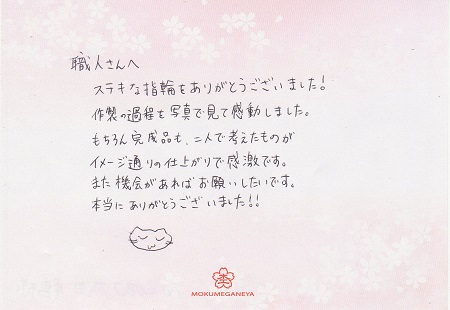 職人さんへ
ステキな指輪をありがとうございました!
作製の過程を写真で見て感動しました。
もちろん完成品も、二人で考えたものが
イメージ通りの仕上がりで感激です。
また機会があればお願いしたいです。
本当にありがとうございました!!
MOKUMEGANEYA